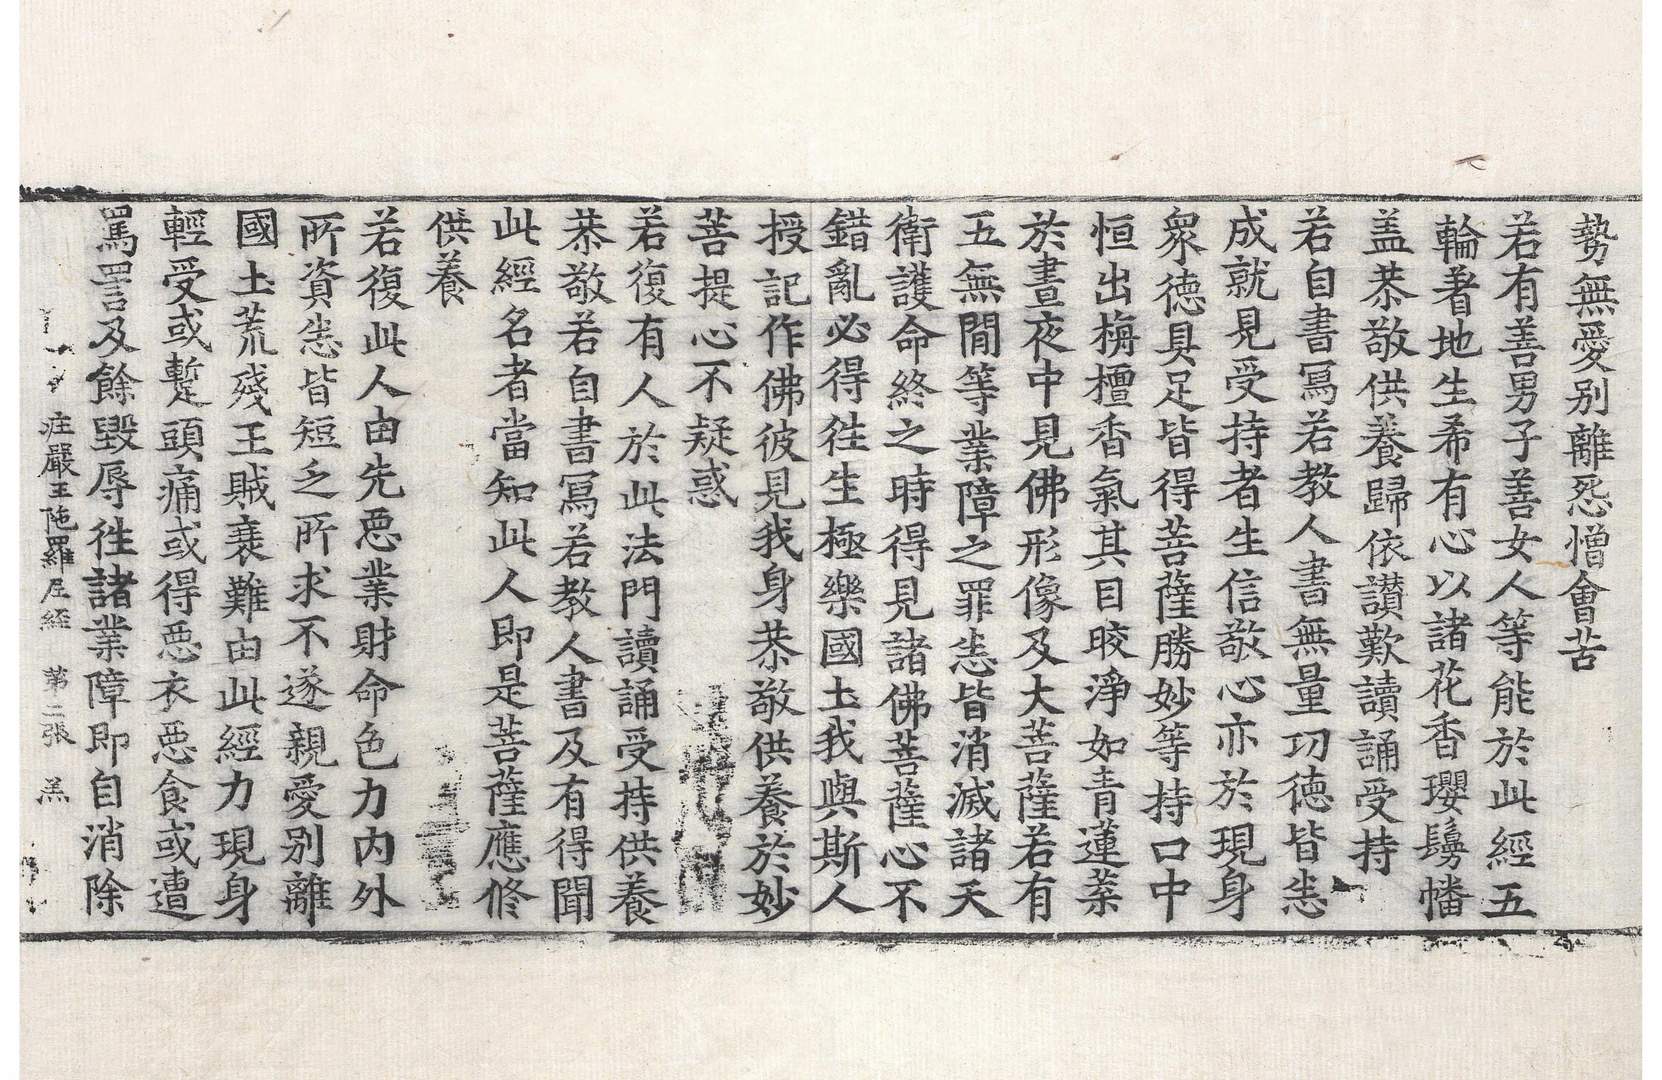 勢無愛别離怨憎會苦
若有善男子善女人等能於此經五
輪著地生希有心以諸花香瓔鬘幡
盖恭敬供養歸依讃歎讀誦受持
若自書寫若教人書無量功德皆悉
成就見受持者生信敬心亦於現身
衆德具足皆得菩薩勝妙等持口中
恒出栴檀香氣其目晈淨如青蓮葉
於晝夜中見佛形像及大菩薩若有
五無間等業障之罪悉皆消滅諸天
衛護命終之時得見諸佛菩薩心不
錯亂必得往生極樂國土我與斯人
授記作佛彼見我身恭敬供養於妙
菩提心不疑惑
若復有人於此法門讀誦受持供養
恭敬若自書寫若教人書及有得聞
此經名者當知此人即是菩薩應修
供養
若復此人由先惡業財命色力内外
所資悉皆短乏所求不遂親愛別離
國土荒殘王賊衰難由此經力現身
輕受或蹔頭痛或得惡衣惡食或遭
罵詈及餘毀辱往諸業障即自消除
庄嚴王陁羅尼経 第二張 羔